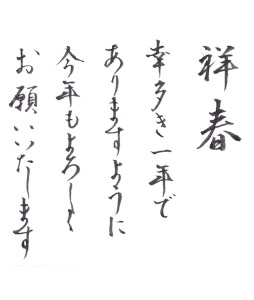 祥春
幸多き一年で
ありますように
今年もよろしく
お願いいたします